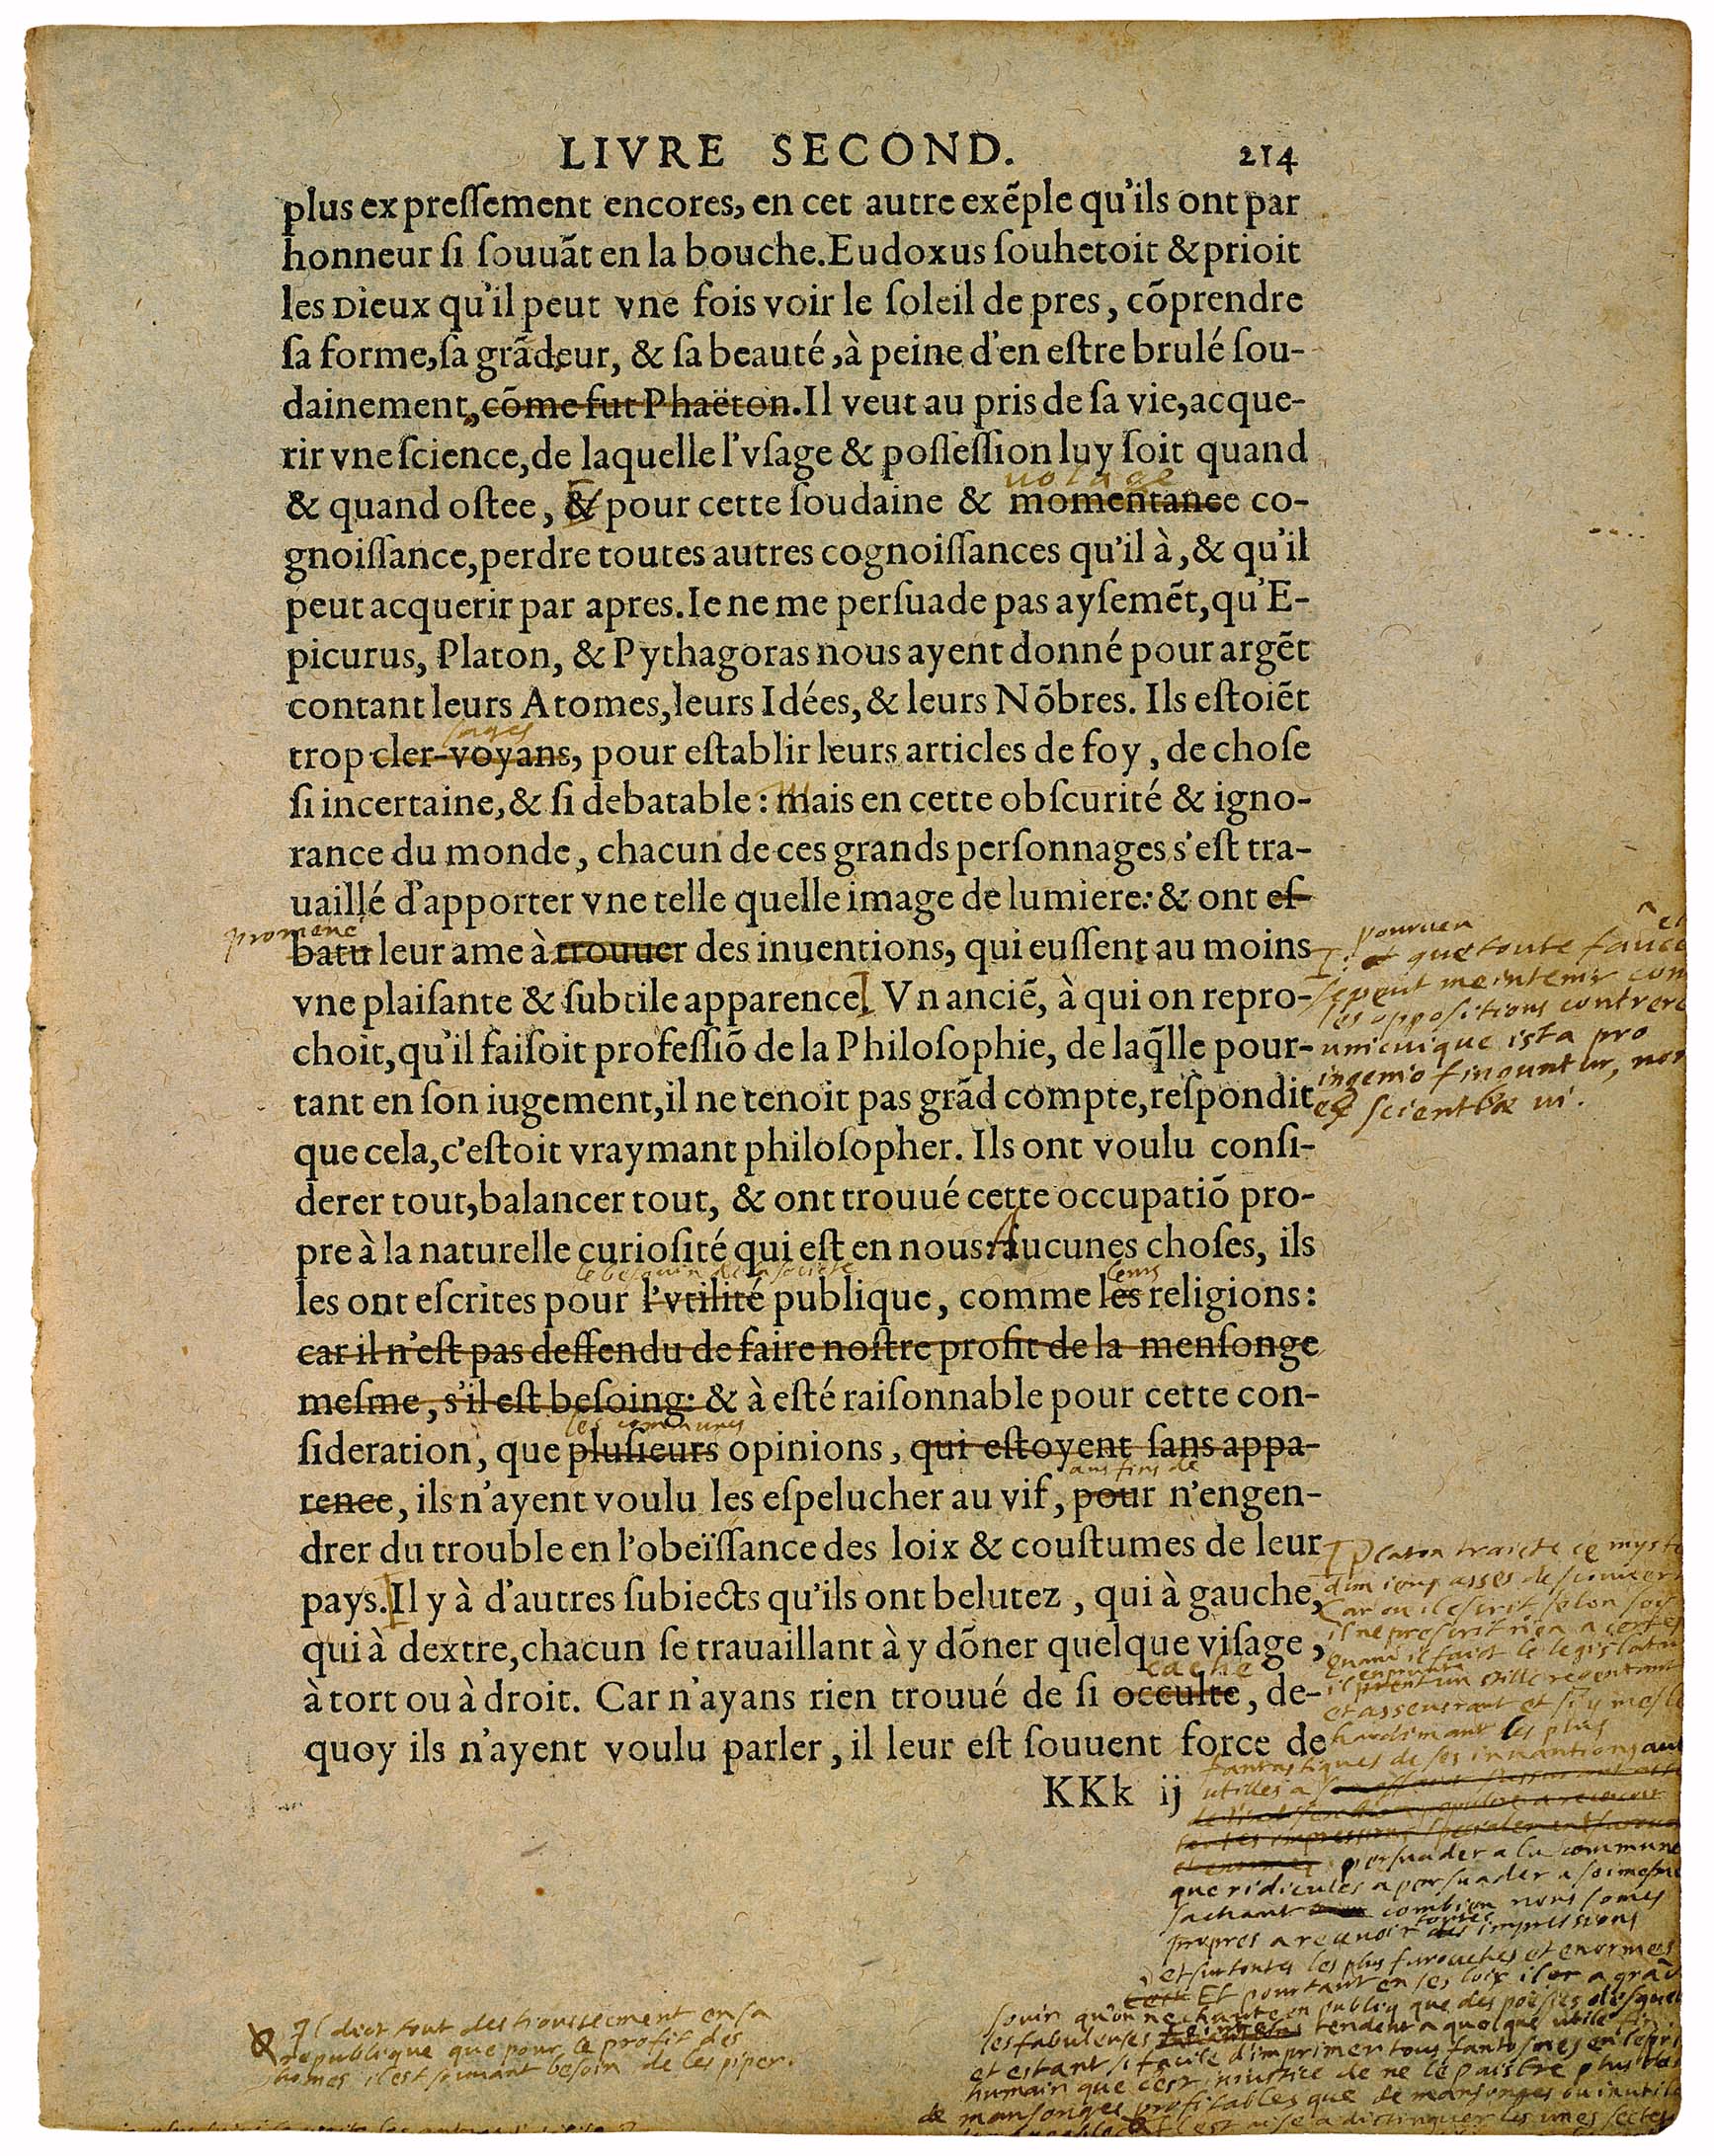 LIVRE SECOND. 214
plus expressement encores, en cet autre exẽple qu'ils ont par
honneur si souuãt en la bouche. Eudoxus souhetoit & prioit
les Dieux qu'il peut vne fois voir le soleil de pres, cõprendre
sa forme, sa grãdeur, & sa beauté, à peine d'en estre brulé sou-
dainement, cõme fut Phaëton. Il veut au pris de sa vie, acque-
rir vne science, de laquelle l'vsage & possession luy soit quand
uolage
& quand ostee, & pour cette soudaine & momentanee co-
gnoissance, perdre toutes autres cognoissances qu'il à, & qu'il
peut acquerir par apres. Ie ne me persuade pas aysemẽt, qu'E-
picurus, Platon, & Pythagoras nous ayent donné pour argẽt
contant leurs Atomes, leurs Idées, & leurs Nõbres. Ils estoiẽt
sages
trop cler-voyans, pour establir leurs articles de foy, de chose
si incertaine, & si debatable: mais en cette obscurité & igno-
rance du monde, chacun de ces grands personnages s'est tra-
uaillé d'apporter vne telle quelle image de lumiere: & ont es-
promene
batu leur ame à trouuer des inuentions, qui eussent au moins
vne plaisante & subtile apparence. Vn anciẽ, à qui on repro-
choit, qu'il faisoit professiõ de la Philosophie, de laq̃lle pour-
tant en son iugement, il ne tenoit pas grãd compte, respondit
que cela, c'estoit vraymant philosopher. Ils ont voulu consi-
derer tout, balancer tout, & ont trouué cette occupatiõ pro-
pre à la naturelle curiosité qui est en nous: Aucunes choses, ils
le besouin de la societe leurs
les ont escrites pour l'vtilité publique, comme les religions:
car il n'est pas deffendu de faire nostre profit de la mensonge
mesme, s'il est besoing: & à esté raisonnable pour cette con-
les communes
sideration, que plusieurs opinions, qui estoyent sans appa-
aus fins de
rence, ils n'ayent voulu les espelucher au vif, pour n'engen-
drer du trouble en l'obeïssance des loix & coustumes de leur
pays. Il y à d'autres subiects qu'ils ont belutez, qui à gauche,
qui à dextre, chacun se trauaillant à y dõner quelque visage,
cache
à tort ou à droit. Car n'ayans rien trouué de si occulte, de-
quoy ils n'ayent voulu parler, il leur est souuent force de
KKk ij
pourueu
que toute fauce
se peut meintenir con
les oppositions contrere
unicuique ista pro
ingenio finguntur, non
ex scientiæ ui.
Platon traicte ce myste
d'un ieu asses descouuert
Car ou il escrit selon soi
il ne prescrit rien a certes
Quand il faict le legislatur
il emprunte un stille regentant
et asseuerant et si y mesle
hardimant les plus
fantastiques de ses inuantions aut
utilles a
persuader a la commune
que ridicules a persuader a soimesme
sachant combien nous somes
propres a receuoir toutes impressions
et sur toutes les plus farouches et enormes
Et pourtant en ses loix il a grãd
souin qu'on ne chante en publiq que des poësies desquel
les fabuleuses tendent a quelque utile fin
et estant si facile d'imprimer tous fantosmes en lespri
humain que c'est iniustice de ne le paistre plus tos
de mansonges profitables que de mansonges ou inutile
est aise a distinguer les unes sectes
Il dict tout destrousseement en sa
republique que pour le profit des
homes il est souuant besoin de les piper.